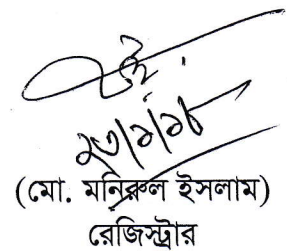 ২৩/১/১৮
(মো. মনিরুল ইসলাম)
রেজিস্ট্রার